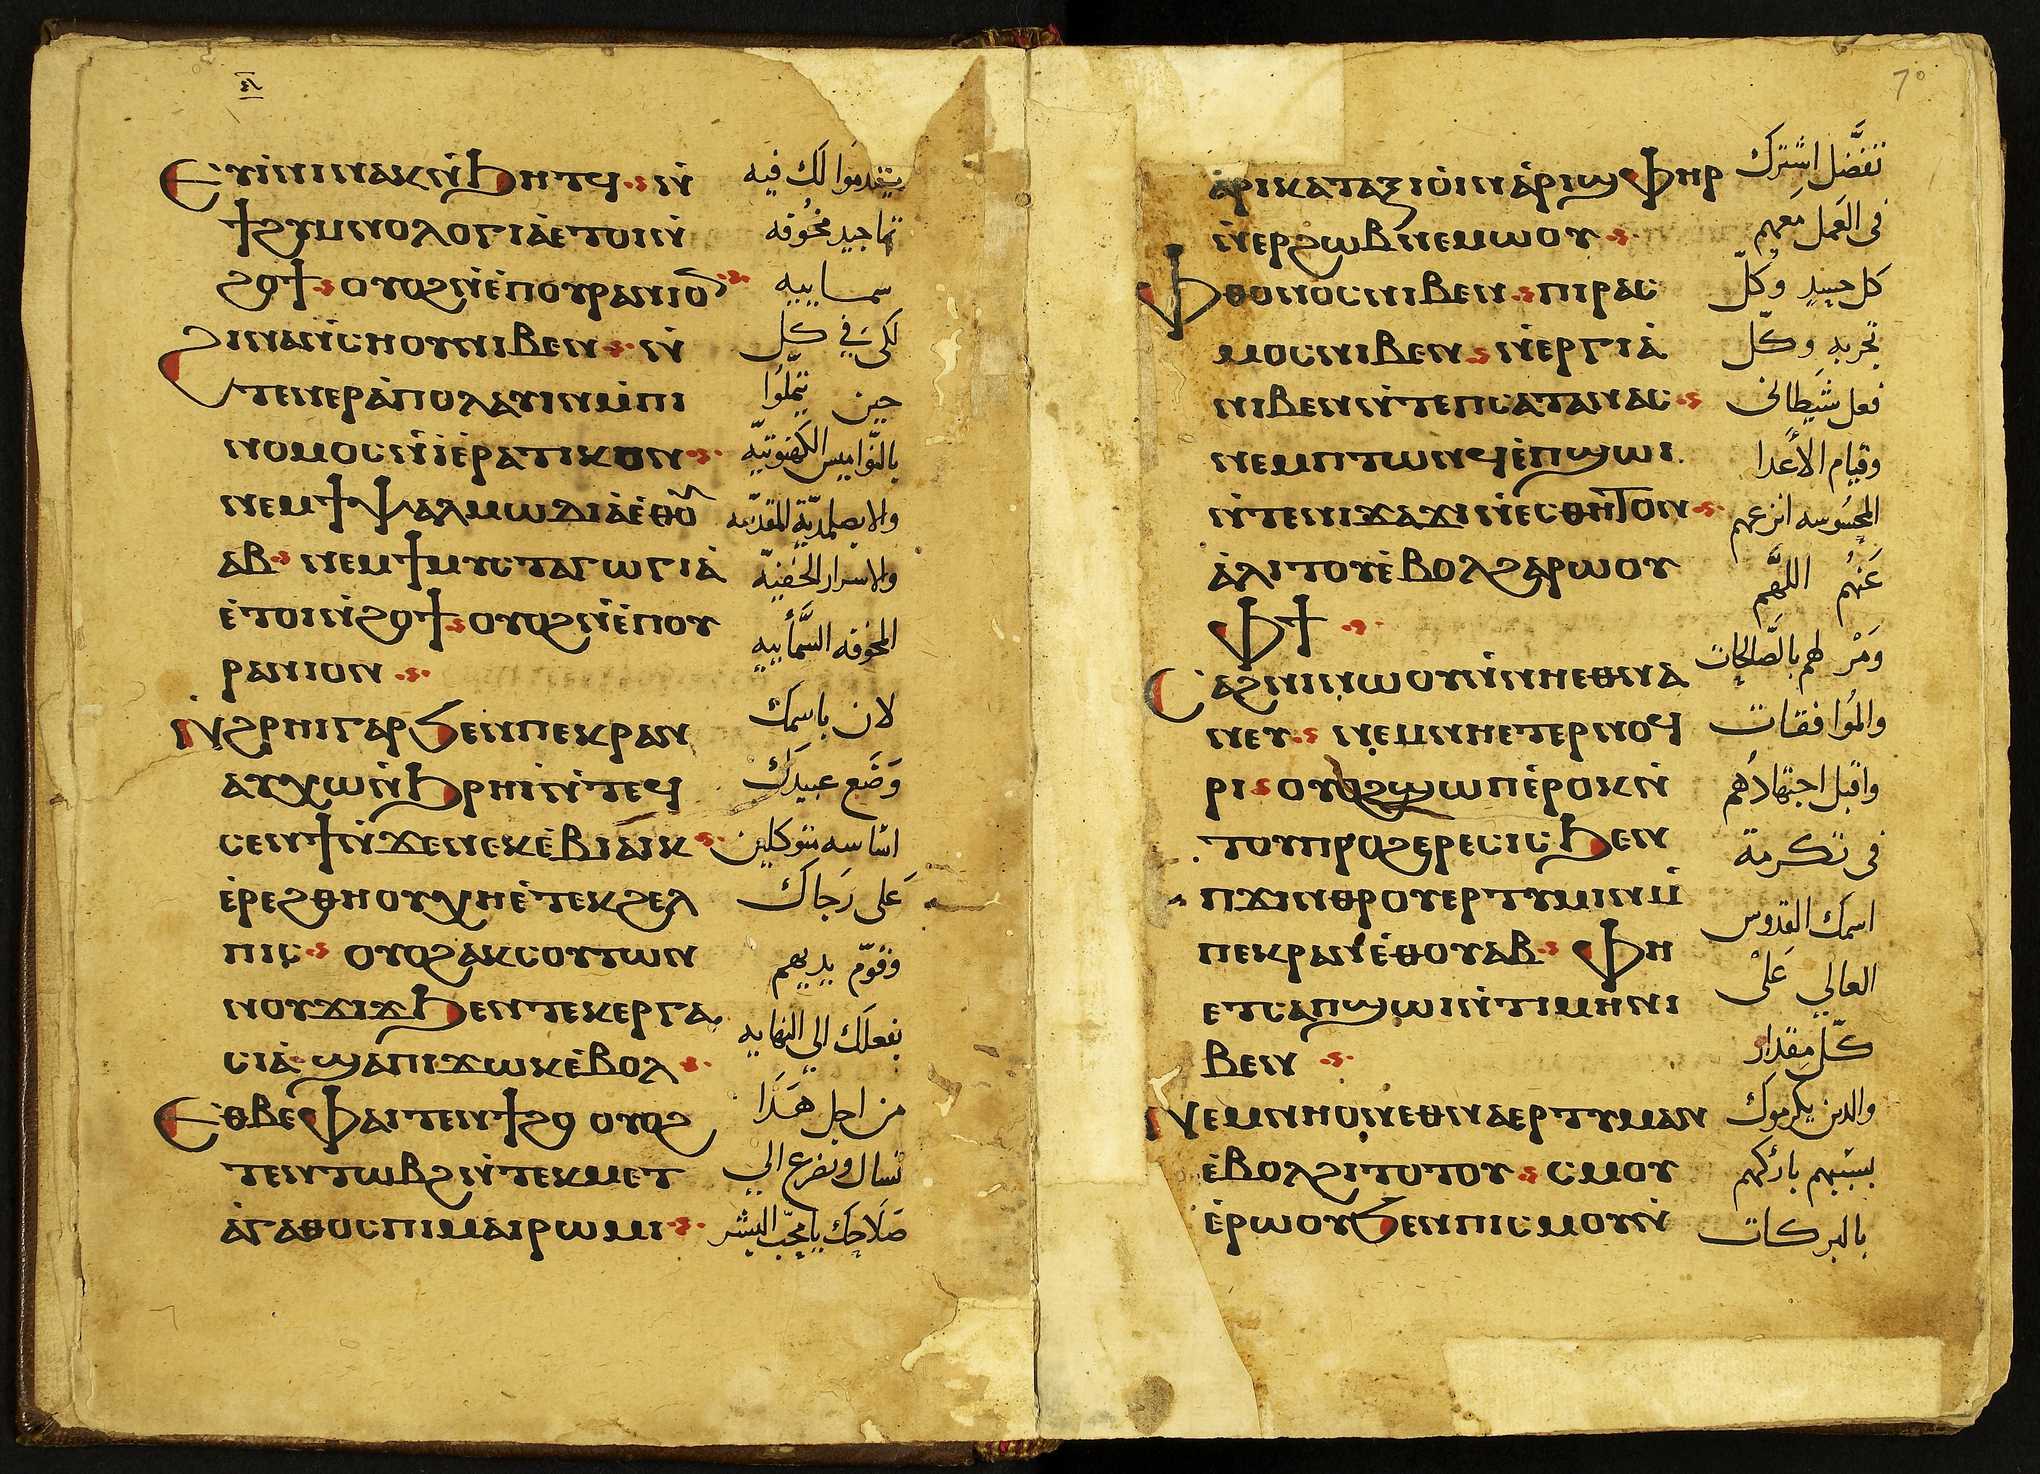 ⲉⲩⲓ̀ⲛⲓⲛⲁⲕⲛ̀ϧⲏⲧϥ ⲛ̀
ϯϩⲩⲙⲛⲟⲗⲟⲅⲓⲁ̀ⲉⲧⲟⲓⲛ̀
ϩⲟϯ ⲟⲩⲟϩⲛ̀ⲉ̀ⲡⲟⲩⲣⲁⲛⲓⲟ̅
ϩⲓⲛⲁⲛ̀ⲥⲏⲟⲩⲛⲓⲃⲉⲛ ⲛ̀
ⲧⲉⲛⲉⲣⲁ̀ⲡⲟⲗⲁⲩⲓⲛⲙ̀ⲡⲓ
ⲛⲟⲙⲟⲥⲛ̀ⲓ̀ⲉ̀ⲣⲁⲧⲓⲕⲟⲛ
ⲛⲉⲙϯⲯⲁⲗⲙⲱⲇⲓⲁ̀ⲉ̀ⲑⲟ̅
ⲁⲃ ⲛⲉⲙϯⲙⲩⲥⲧⲁⲅⲱⲅⲓⲁ̀
ⲉ̀ⲧⲟⲓⲛ̀ϩⲟϯ ⲟⲩⲟϩⲛ̀ⲉ̀ⲡⲟⲩ
ⲣⲁⲛⲓⲟⲛ
ⲛ̀ϩⲣⲏⲓⲅⲁⲣϧⲉⲛⲡⲉⲕⲣⲁⲛ
ⲁⲩⲭⲱⲛ̀ϧⲣⲏⲓⲛ̀ⲧⲉϥ
ⲥⲉⲛϯⲛ̀ϫⲉⲛⲉⲕⲉ̀ⲃⲓⲁⲓⲕ
ⲉ̀ⲣⲉϩⲑⲏⲟⲩⲭⲏⲉ̀ⲧⲉⲕϩⲉⲗ
ⲡⲓⲥ ⲟⲩⲟϩⲁⲕⲥⲟⲩⲧⲱⲛ
ⲛⲟⲩϫⲓϫϧⲉⲛⲧⲉⲕⲉⲣⲅⲁ
ⲥⲓⲁ̀ ϣⲁⲡⲓϫⲱⲕⲉ̀ⲃⲟⲗ
ⲉⲑⲃⲉⲫⲁⲓⲧⲉⲛϯϩⲟ ⲟⲩⲟϩ
ⲧⲉⲛⲧⲱⲃϩⲛ̀ⲧⲉⲕⲙⲉⲧ
ⲁ̀ⲅⲁⲑⲟⲥⲡⲓⲙⲁⲓⲣⲱⲙⲓ
يقدموا لك فيه
تماجيد مخوفه
سماييه
لكي في كل
حين نتملوا
بالنواميس الكهنوتيه
والابصلمدية المقدسه
والاسرار الخفيه
المخوفه السمائيه
لان باسمك
وضع عبيدك
اساسه متوكلين
على رجاك
وقوّم يديهم
بفعلك الي النهايه
من اجل هذا
نسال ونضرع الي
صلاحك يا محب البشر
70
ⲁ̀ⲣⲓⲕⲁⲧⲁⲝⲓⲟⲓⲛⲁ̀ⲣⲓϣⲫⲏⲣ
ⲛ̀ⲉⲣϩⲱⲃⲛⲉⲙⲱⲟⲩ
ⲫⲑⲟⲛⲟⲥⲛⲓⲃⲉⲛ ⲡⲓⲣⲁⲥ
ⲙⲟⲥⲛⲓⲃⲉⲛ ⲛ̀ⲉⲣⲅⲓⲁ̀
ⲛⲓⲃⲉⲛⲛ̀ⲧⲉⲡⲥⲁⲧⲁⲛⲁⲥ
ⲛⲉⲙⲡⲧⲱⲛϥⲉ̀ⲡϣⲱⲓ
ⲛ̀ⲧⲉⲛⲓϫⲁϫⲓⲛ̀ⲉⲥⲑⲏⲧⲟⲛ
ⲁ̀ⲗⲓⲧⲟⲩⲉ̀ⲃⲟⲗϩⲁⲣⲱⲟⲩ
ⲫϯ
ⲥⲁϩⲛⲓⲛⲱⲟⲩⲛ̀ⲛⲏⲉⲑⲛⲁ
ⲛⲉⲩ ⲛⲉⲙⲛⲏⲉⲧⲉⲣⲛⲟϥ
ⲣⲓ ⲟⲩⲟϩϣⲱⲡⲉ̀ⲣⲟⲕⲛ̀
ⲧⲟⲩⲡⲣⲟϩⲉⲣⲉⲥⲓⲥϧⲉⲛ
ⲡϫⲓⲛⲑⲣⲟⲩⲉⲣⲧⲩⲙⲓⲛⲙ̀
ⲡⲉⲕⲣⲁⲛⲉ̀ⲑⲟⲩⲁⲃ ⲫⲏ
ⲉⲧⲥⲁⲡϣⲱⲓⲛ̀ⲧⲓⲙⲏⲛⲓ
ⲃⲉⲛ
ⲛⲉⲙⲛⲏⲟⲛⲉⲑⲛⲁⲉⲣⲧⲩⲙⲁⲛ
ⲉ̀ⲃⲟⲗϩⲓⲧⲟⲧⲟⲩ ⲥⲙⲟⲩ
ⲉ̀ⲣⲱⲟⲩϧⲉⲛⲡⲓⲥⲙⲟⲩⲛ̀
تفضل اشترك
في العمل معهم
كل حسد وكل
تجربه وكل
فعل شيطاني
وقيام الاعدا
المحسوسه انزعهم
عنهم اللهم
ومر لهم بالصالحات
والموافقات
واقبل اجتهادهم
في تكرمة
اسمك القدوس
العالي على
كل مقدار
والدين يكرموك
بسببهم باركهم
بالبركات